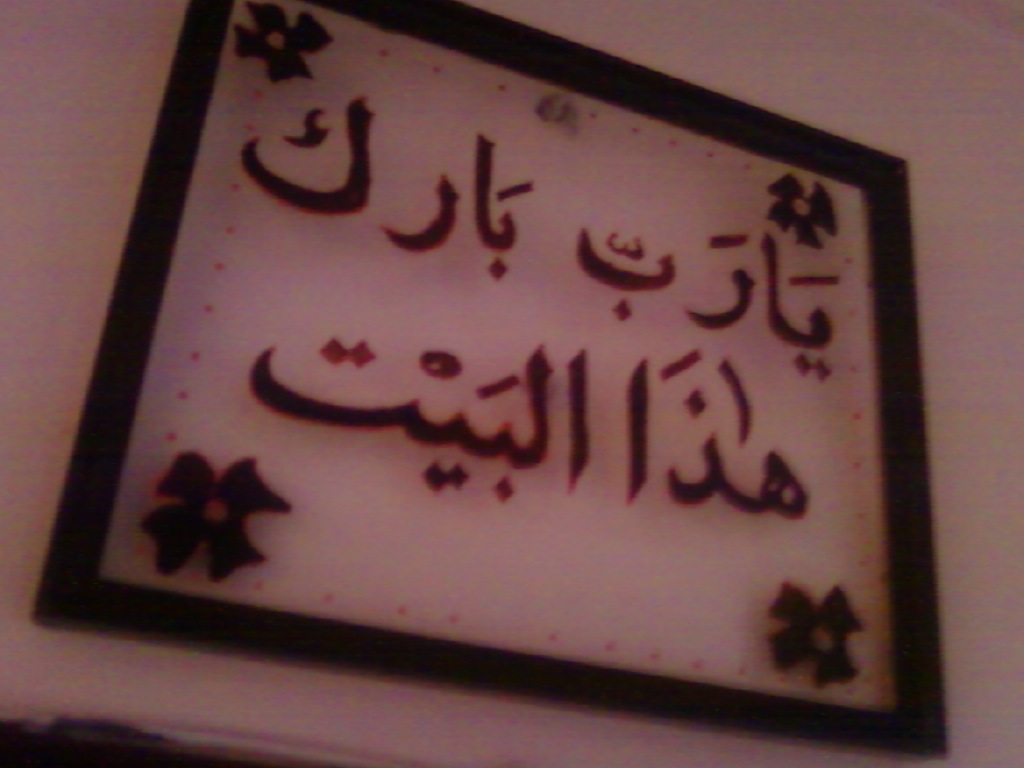 يَارَبّ بَارك
هذَا البَيْت